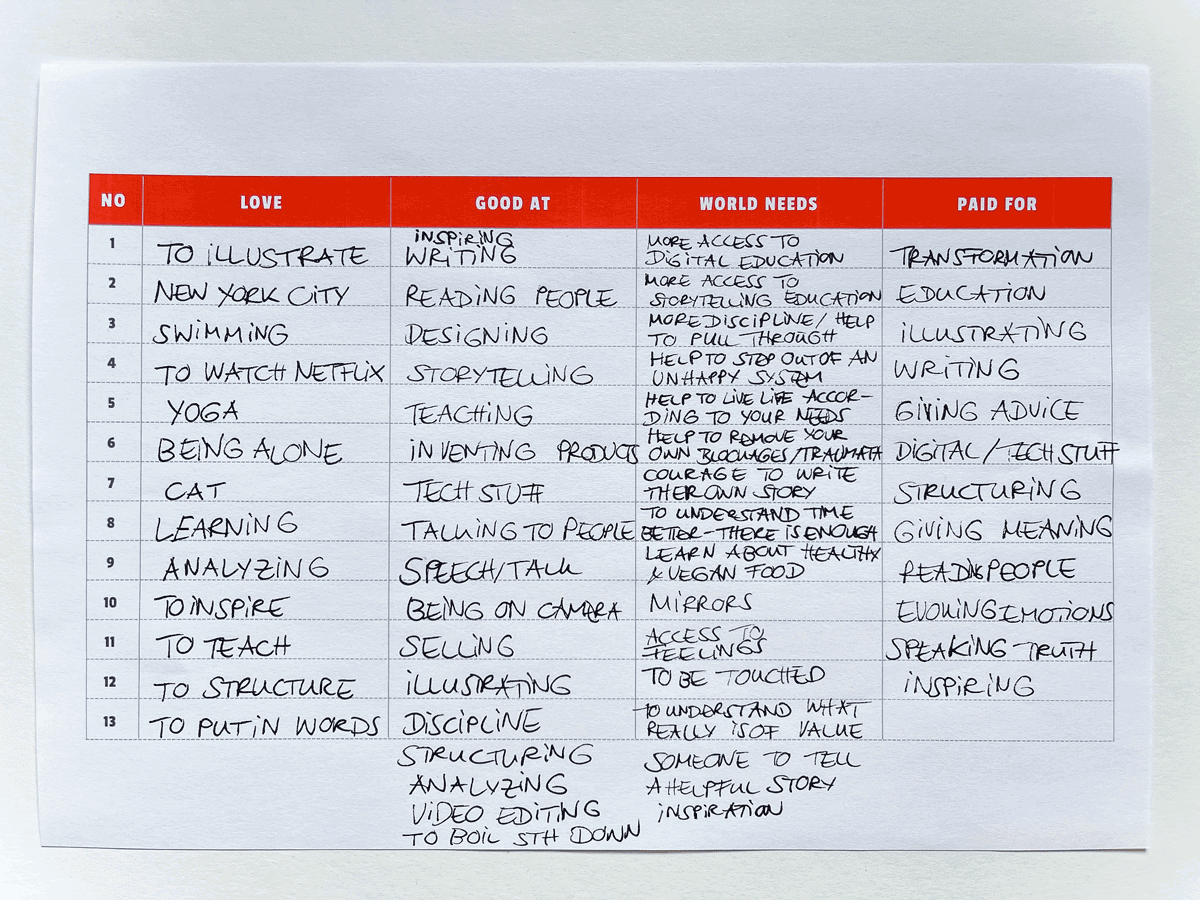 NO LOVE GOOD AT WORLD NEEDS PAID FOR
1 TO ILLUSTRATE INSPIRING WRITING MORE ACCESS TO DIGITAL EDUCATION TRANSFORMATION
2 NEW YORK CITY READING PEOPLE MORE ACCESS TO STORYTELLING EDUCATION EDUCATION
3 SWIMMING DESIGNING MORE DISCIPLINE/HELP TO PULL THROUGH ILLUSTRATING
4 TO WATCH NETFLIX STORYTELLING HELP TO STEP OUT OF AN UNHAPPY SYSTEM WRITING
5 YOGA TEACHING HELP TO LIVE LIFE ACCOR- DING TO YOUR NEEDS GIVING ADVICE
6 BEING ALONE INVENTING PRODUCTS HELP TO REMOVE YOUR OWN BLOCKAGES/TRAUMATA DIGITAL/TECH STUFF
7 CAT TECH STUFF COURAGE TO WRITE THER OWN STORY STRUCTURING
8 LEARNING TALKING TO PEOPLE TO UNDERSTAND TIME BETTER - THERE IS ENOUGH GIVING MEANING
9 ANALYZING SPEECH/TALK LEARN ABOUT HEALTHY & VEGAN FOOD READING PEOPLE
10 TO INSPIRE BEING ON CAMERA MIRRORS EVOKING EMOTIONS
11 TO TEACH SELLING ACCESS TO FEELINGS SPEAKING TRUTH
12 TO STRUCTURE ILLUSTRATING TO BE TOUCHED INSPIRING
13 TO PUT IN WORDS DISCIPLINE TO UNDERSTAND WHAT REALLY IS OF VALUE
STRUCTURING SOMEONE TO TELL
ANALYZING A HELPFUL STORY
VIDEO EDITING INSPIRATION
TO BOIL STH DOWN